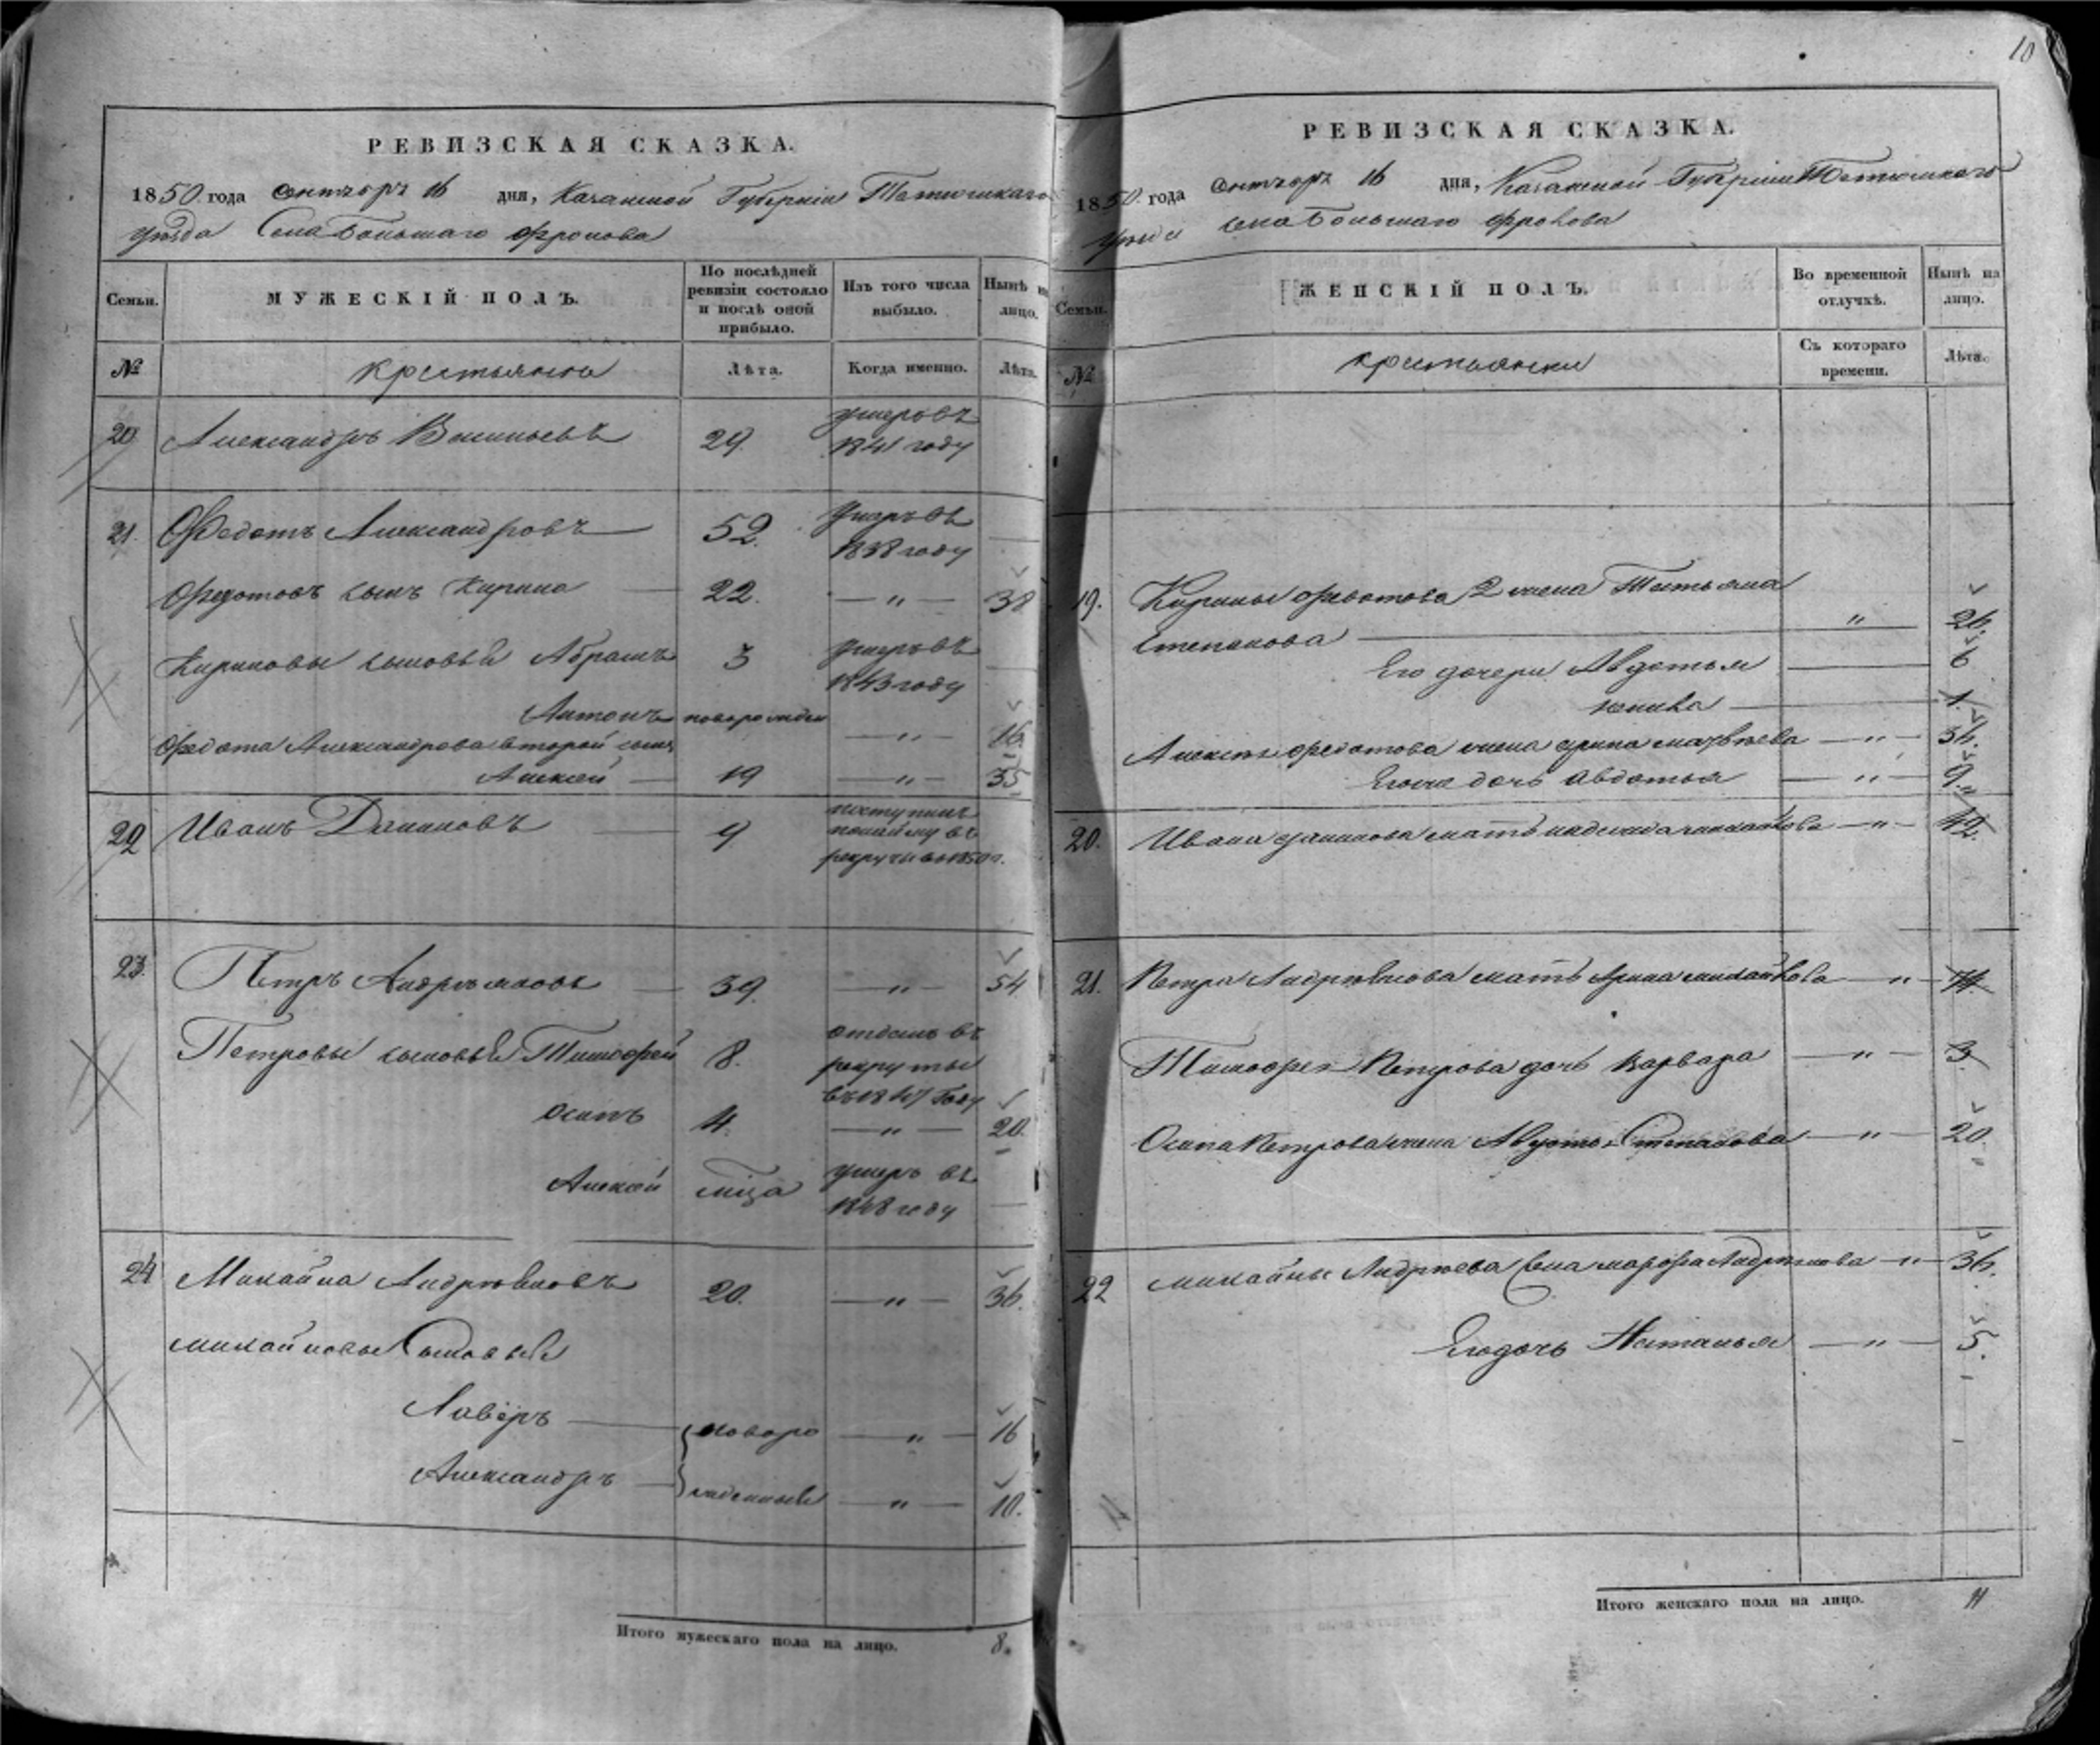 10
РЕВИЗСКАЯ СКАЗКА.
1850 года Сентября 16 дня, Казанской Губернии Тетюшскаго
уезда Села Большаго Фролова
Семьи.
МУЖЕСКІЙ ПОЛЪ.
По послѣдней ревизіи состояло и послѣ оной прибыло.
Изъ того числа выбыло.
Нынѣ на лицо.
№
крестьяне
Лѣта.
Когда именно.
Лѣта.
20 Александръ Васильевъ 29. умеръ въ
1841 году
21. Федотъ Александровъ 52. умеръ въ
1838 году
Федотовъ сынъ Кирила 22. — " — 38
Кириловы сыновья Абрамъ 3 умеръ въ
1843 году
Антонъ новорожден — " — 16.
Федота Александрова второй сынъ
Алексей 19 — " — 35
22 Иванъ Даниловъ 9 поступилъ
по найму въ
рекруты въ 1850 г.
23. Петръ Андреяновъ 39. — " — 54
Петровы сыновья Тимофей 8. отданъ въ
рекруты
въ 1847 году
Осипъ 4. — " — 20.
Алексей м͠ца умеръ въ
1848 году
24 Михайла Андреяновъ 20. — " — 36.
Михайловы Сыновья
Лаверъ новоро — " — 16
Александръ жденныя — " — 10.
Итого мужескаго пола на лицо. 8.
РЕВИЗСКАЯ СКАЗКА.
1850 года Сентября 16 дня, Казанской Губернии Тетюшскаго
уезда села Большаго Фролова
Семьи.
ЖЕНСКІЙ ПОЛЪ.
Во временной отлучкѣ.
Нынѣ на лицо.
№
крестьянки
Съ котораго времени.
Лѣта.
19. Кирилы Федотова 2 жена Татьяна
Степанова " 26.
Его дочери Авдотья 6
1.
Алексея Федотова жена Арина Матвеева — " — 36.
Егоже дочь Авдотья — " — 9.
20. Ивана Данилова мать Надежда Михайлова — " — 42.
21. Петра Андреянова мать Арина Михайлова — " — 74.
Тимофея Петрова дочь Варвара — " — 3
Осипа Петрова жена Авдотья Степанова — " — 20.
22 Михайлы Андреева жена Марфа Андреянова — " — 36.
Его дочь Наталья — " — 5.
Итого женскаго пола на лицо. 11